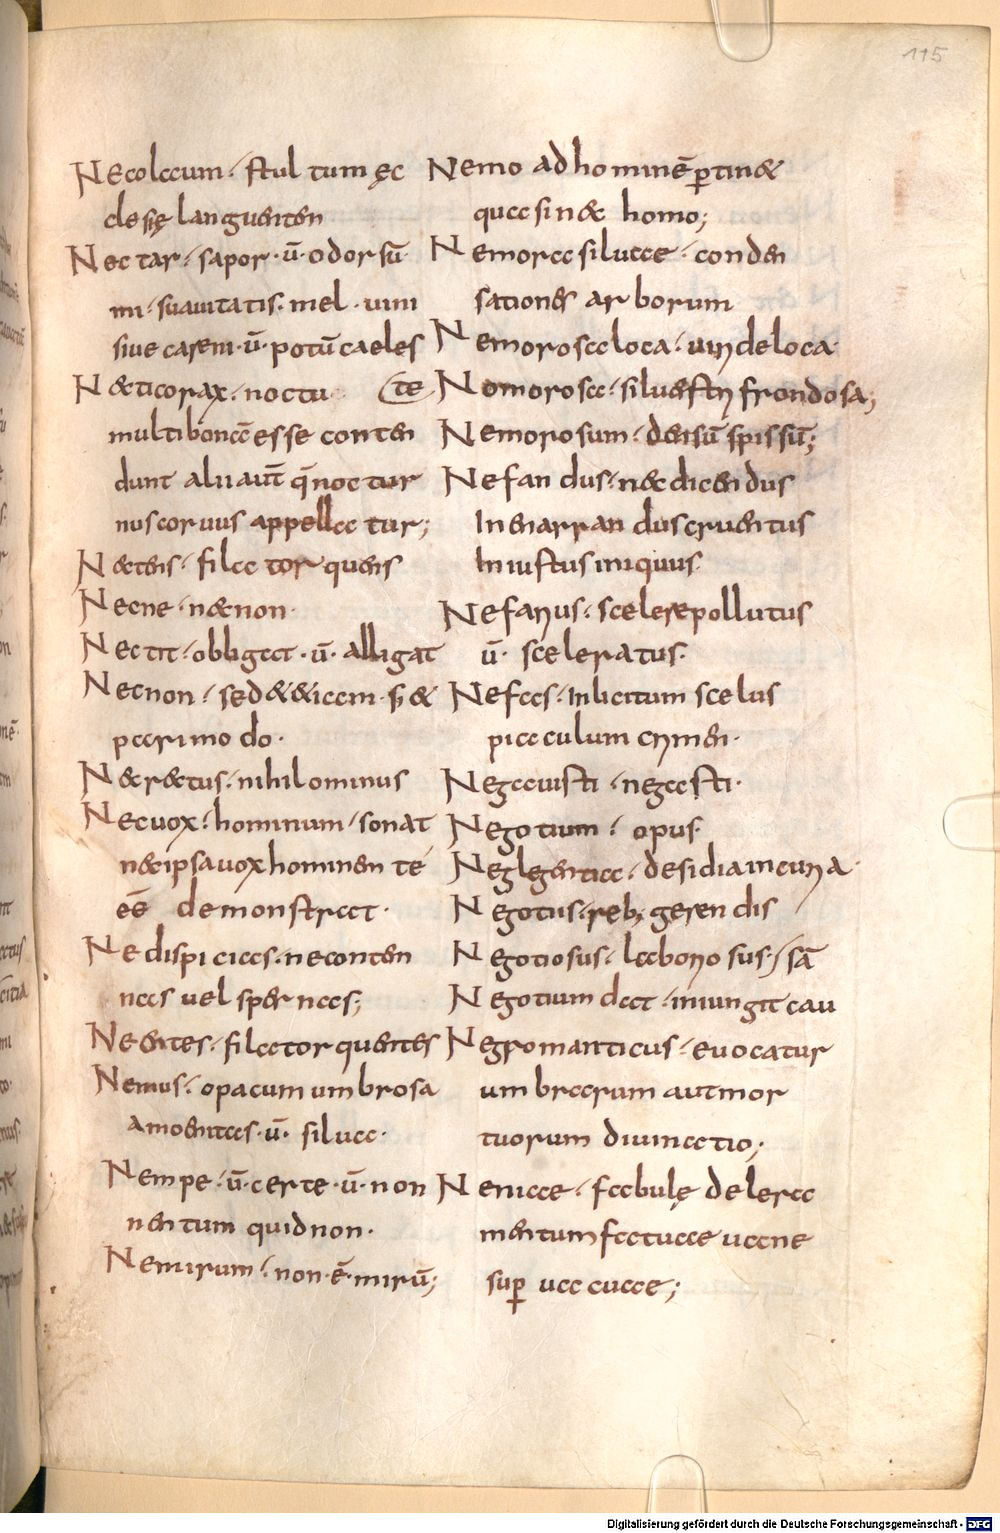 115
Necolacum· stultum ęc
clesię languenten
Nectar· sapor· ū· odor sū
mi· suauitatis· mel· uini
siue carem· ū· potū caeles
Neticorax· noctu (te
multi bonā esse conten
dunt alii aut̄ q̄ noctur
nus coruus appellatur;
Netens· fila torquens
Necne· netnon·
Nectit· obligat· ū· alligat
Necnon· sed et etiam· s; et
pari modo·
Netretus· nihilominus
Necuox· hominum· sonat
nec ipsa uox hominen te
eē demonstrat·
Nedispicias· ne conten
nas uel spernas;
Neentes· fila torquentes
Nemus· opacum umbrosa
amoenitas· ū· silua·
Nempe· ū· certe· ū· non
nentum quid non·
Nemirum· non· ē· mirū;
Nemo ad hominē ꝑtinet
qua sin et homo;
Nemora siluae· conden
sationes arborum
Nemorosa loca· uirideloca·
Nomorosa· siluestri frondosa;
Nemorosum· densū spissū;
Nefandus· nec dicendus
Inenarrandus cruentus
Iniustus iniquus·
Nefarius· scelere pollutus
ū· sceleratus·
Nefas· Inlicitum scelus
piaculum crimen·
Negauisti· negasti·
Negotium· opus·
Neglegentia· desidia incuria·
Negotiis· reb; gerendis
Negotiosus· laboriosus· sā
Negotium dat· iniungit cau
Negromanticus· euocatur
umbrarum aut mor
tuorum diuinatio;
Neniae· fabulę delera
mentum fatuae uane
suꝑ uacuae;
Digitalisierung gefördert durch die Deutsche Forschungsgemeinschaft - DFG